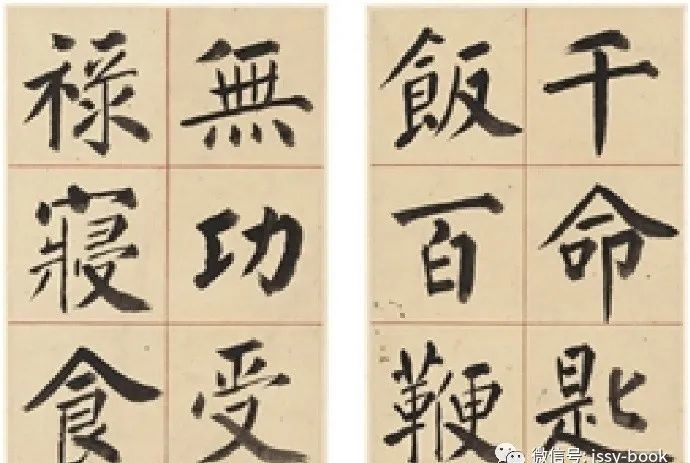 千命匙
飯百鞭
無功受
禄寢食
微信号: issy-book